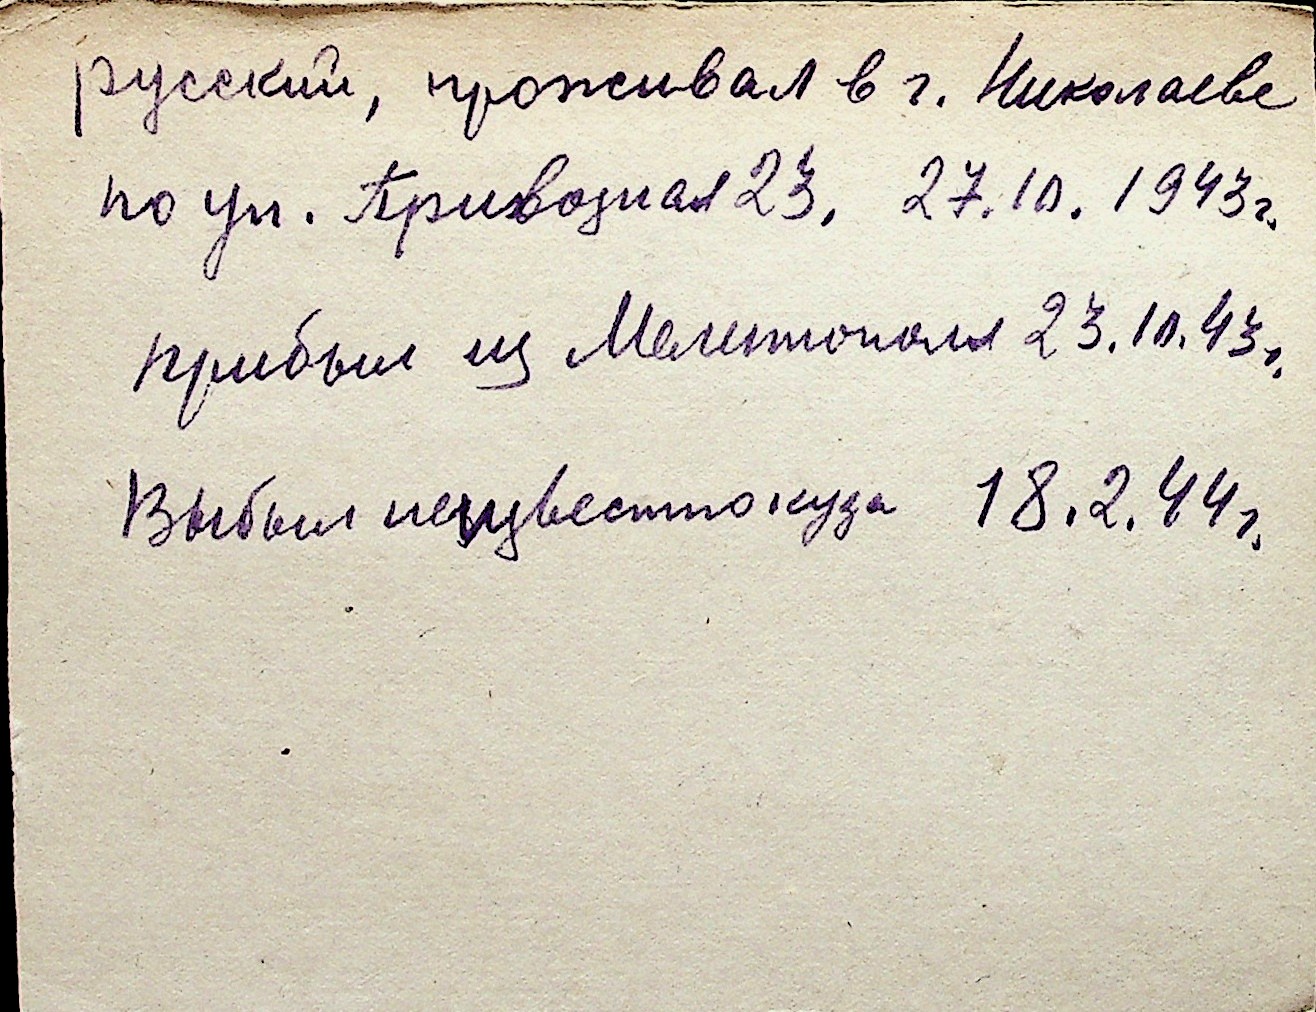 русский, проживал в г. Николаеве
по ул. Привозная 23, 27.10.1943г.
прибыл из Мелитополя 23.10.43г.
Выбыл неизвестно куда 18.2.44г.